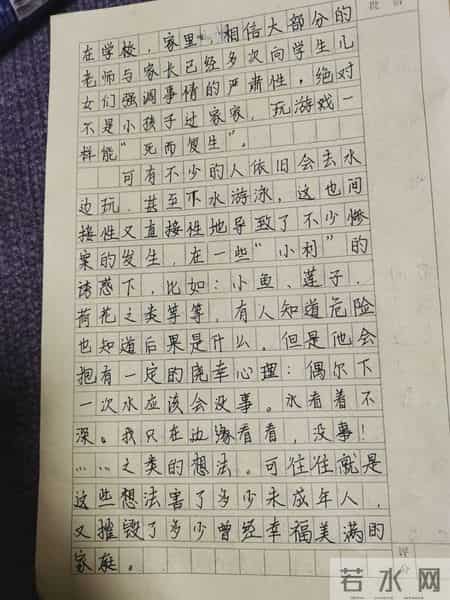 批 语
在学校，家里，相信大部分的
老师与家长已经多次向学生儿
女们强调事情的严肃性，绝对
不是小孩子过家家，玩游戏一
样能“死而复生”。
可有不少的人依旧会去水
边玩，甚至下水游泳，这也间
接性又直接性地导致了不少惨
案的发生，在一些“小利”的
诱惑下，比如：小鱼、莲子、
荷花之类等等，有人知道危险
也知道后果是什么，但是他会
抱有一定的侥幸心理：偶尔下
一次水应该会没事。水看着不
深。我只在边缘看看，没事！
……之类的想法。可往往就是
这些想法害了多少未成年人，
又摧毁了多少曾经幸福美满的
家庭。
评
分
若水网